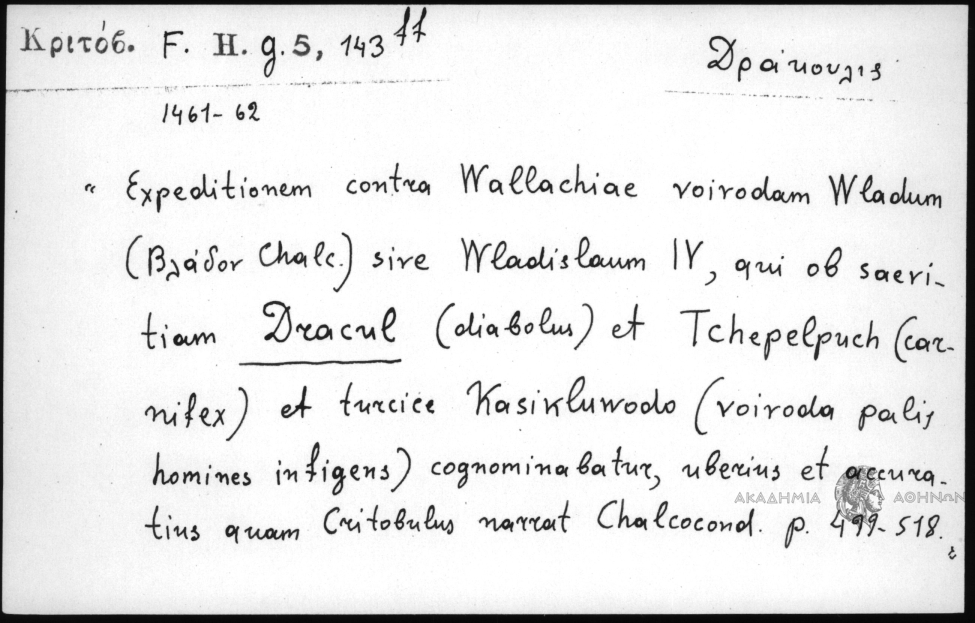 Κριτόβ. F. H. g. 5, 143 ff
Δράκουλις
1461-62
“ Expeditionem contra Wallachiae voivodam Wladum
(Βλάδον Chalc.) sive Wladislaum IV, qui ob saevi-
tiam Dracul (diabolus) et Tchepelpuch (car-
nifex) et turcice Kasikluwodo (voivoda palis
homines infigens) cognominabatur, uberius et accura-
tius quam Critobulus narrat Chalcocond. p. 499-518.
ΑΚΑΔΗΜΙΑ ΑΘΗΝΩΝ